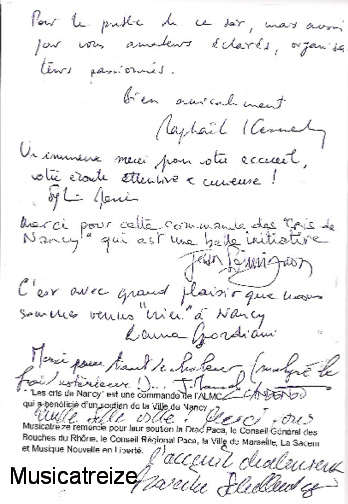 Pour le public de ce soir, mais aussi
pour vous amateurs éclairés, organisa
teurs passionnés.
Bien amicalement
Raphaël Kennedy
Un immense merci pour votre accueil,
votre écoute attentive & curieuse !
merci pour cette commande des "Cris de
Nancy" qui est une belle initiative
C'est avec grand plaisir que nous
sommes venus "crier" à Nancy
Giordiani
Merci pour tant de chaleur (malgré le
froid extérieur !)...
"Les cris de Nancy" est une commande de l'ALMC
qui a bénéficié d'un soutien de la Ville du Nancy
Quelle belle ville ! Merci
Musicatreize remercie pour leur soutien la Drac Paca, le Conseil Général des
Bouches du Rhône, le Conseil Régional Paca, la Ville de Marseille, La Sacem
et Musique Nouvelle en Liberté.
l'accueil chaleureux
Musicatreize